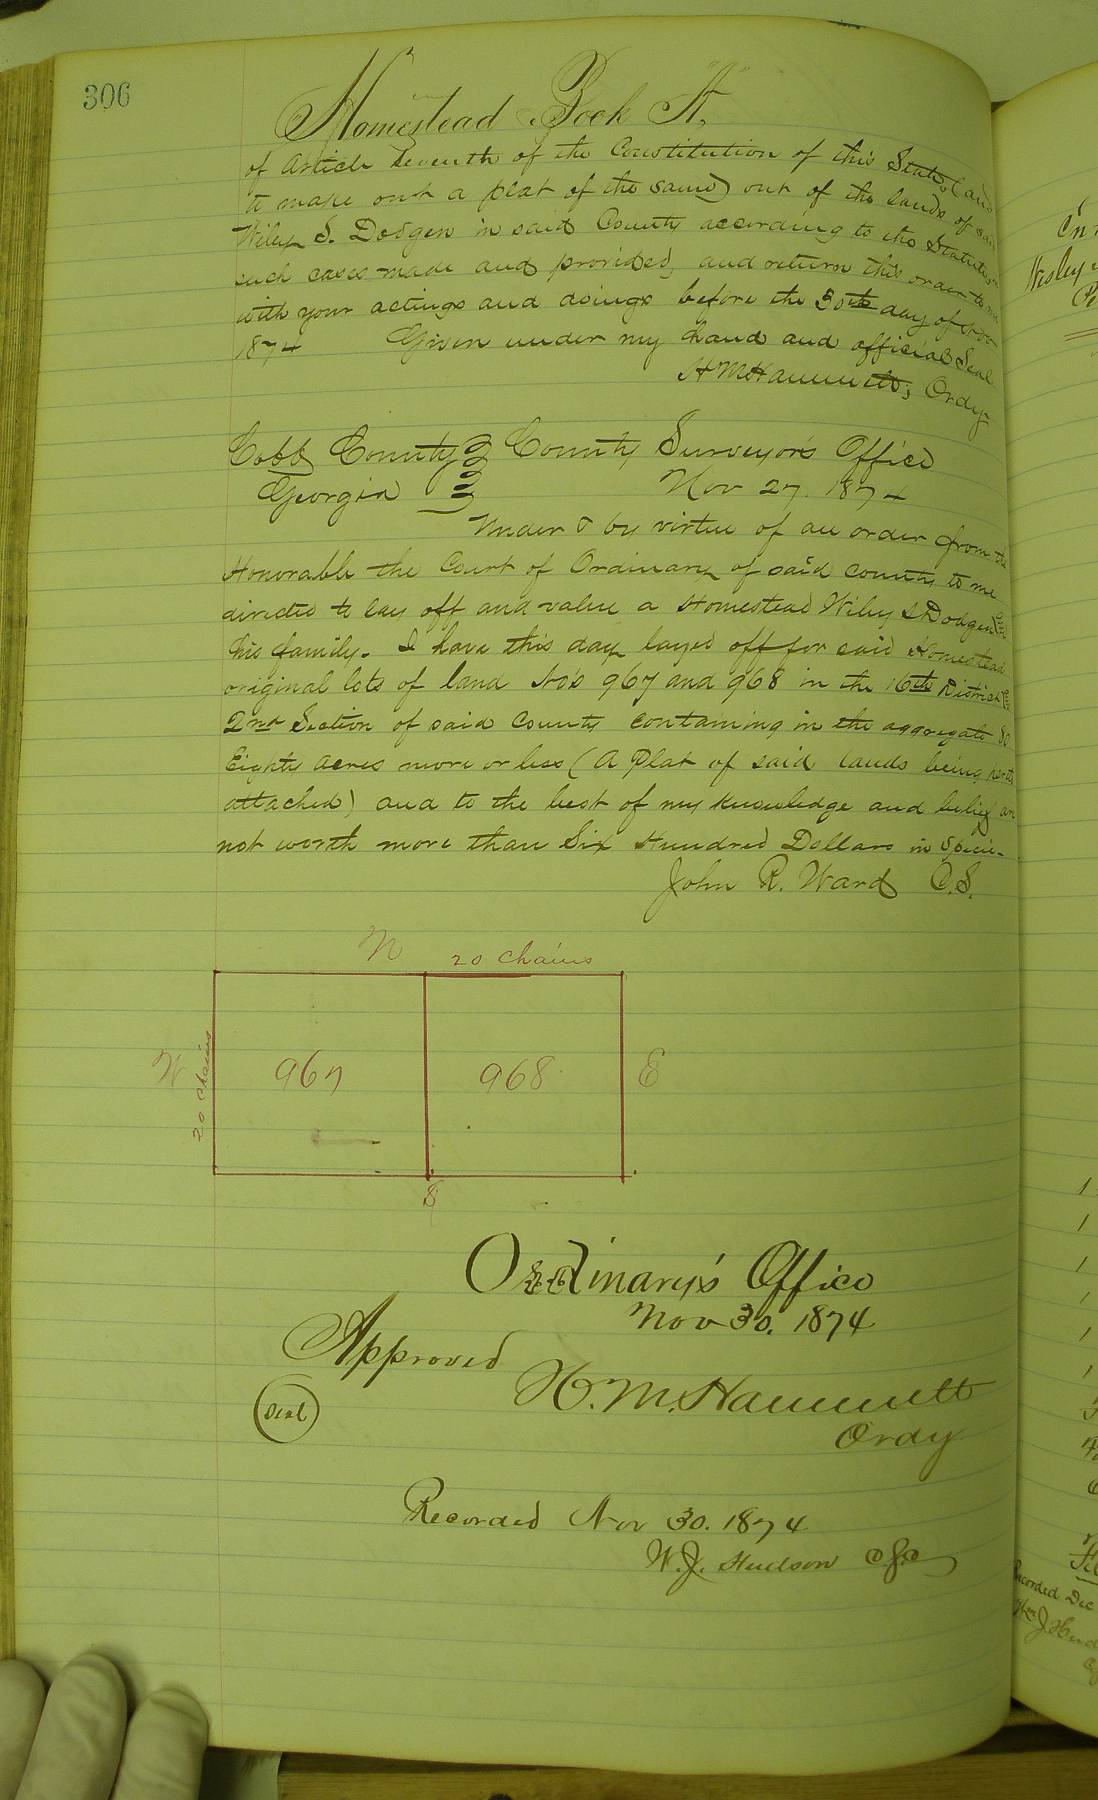 306
Homestead Book "A"
of Article Seventh of the Constitution of this State, (and
to make out a plat of the same) out of the lands of said
Wiley S. Dodgen in said County according to the Statutes in
such cases made and provided, and return this order to me
with your actings and doings before the 30th day of Nov
1874 Given under my hand and official Seal
H M Hammett, Ordy
Cobb County County Surveyor's Office
Georgia Nov 27. 1874
Under & by virtue of an order from the
Honorable the Court of Ordinary of said county to me
directed to lay off and value a Homestead Wiley S Dodgen
his family. I have this day layed off for said Homestead
original lots of land No's 967 and 968 in the 16th District
2nd Section of said County containing in the aggregate 80
Eighty acres more or less (A Plat of said lands being hereto
attached) and to the best of my knowledge and belief are
not worth more than Six Hundred Dollars in Specie.
John R. Ward C.S.
N 20 chains
W 20 chains 967 968 E
S
Ordinary's Office
Nov 30. 1874
Approved
H. M. Hammett
Seal
Ordy
Recorded Nov 30. 1874
W. J. Hudson
Wesley
Recorded Dec
Wm J Hud